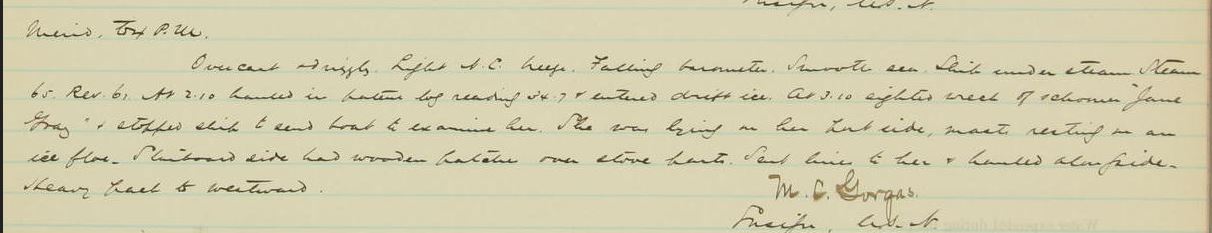 Ensign, U.S.N.
Merid. to 4 P.M.
Overcast & drizzly. Light N.E. breeze. Falling barometer. Smooth sea. Ship under steam. Steam
65. Rev. 61. At 2.10 hauled in patent log reading 54.7 & entered drift ice. At 3.10 sighted wreck of schooner "Jane
Gray" & stopped ship to send boat to examine her. She was lying on her Port side, masts resting on an
ice floe. Starboard side had wooden patches over stove parts. Sent lines to her & hauled alongside.
Heavy pack to westward.
M. C. Gorgas.
Ensign, U.S.N.